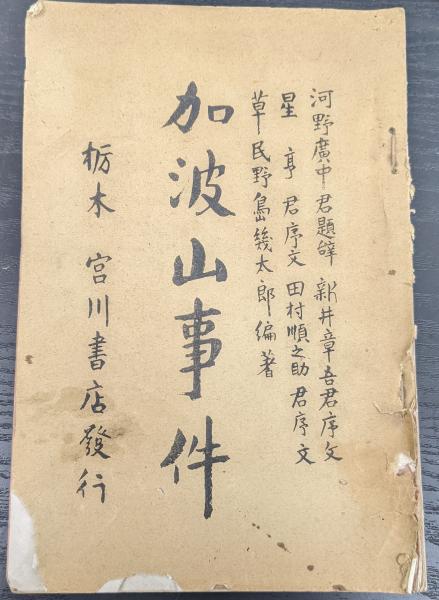 河野廣中君題辞 新井章吾君序文
星 亨 君序文 田村順之助君序文
草民野島幾太郎編著
加波山事件
栃木 宮川書店發行